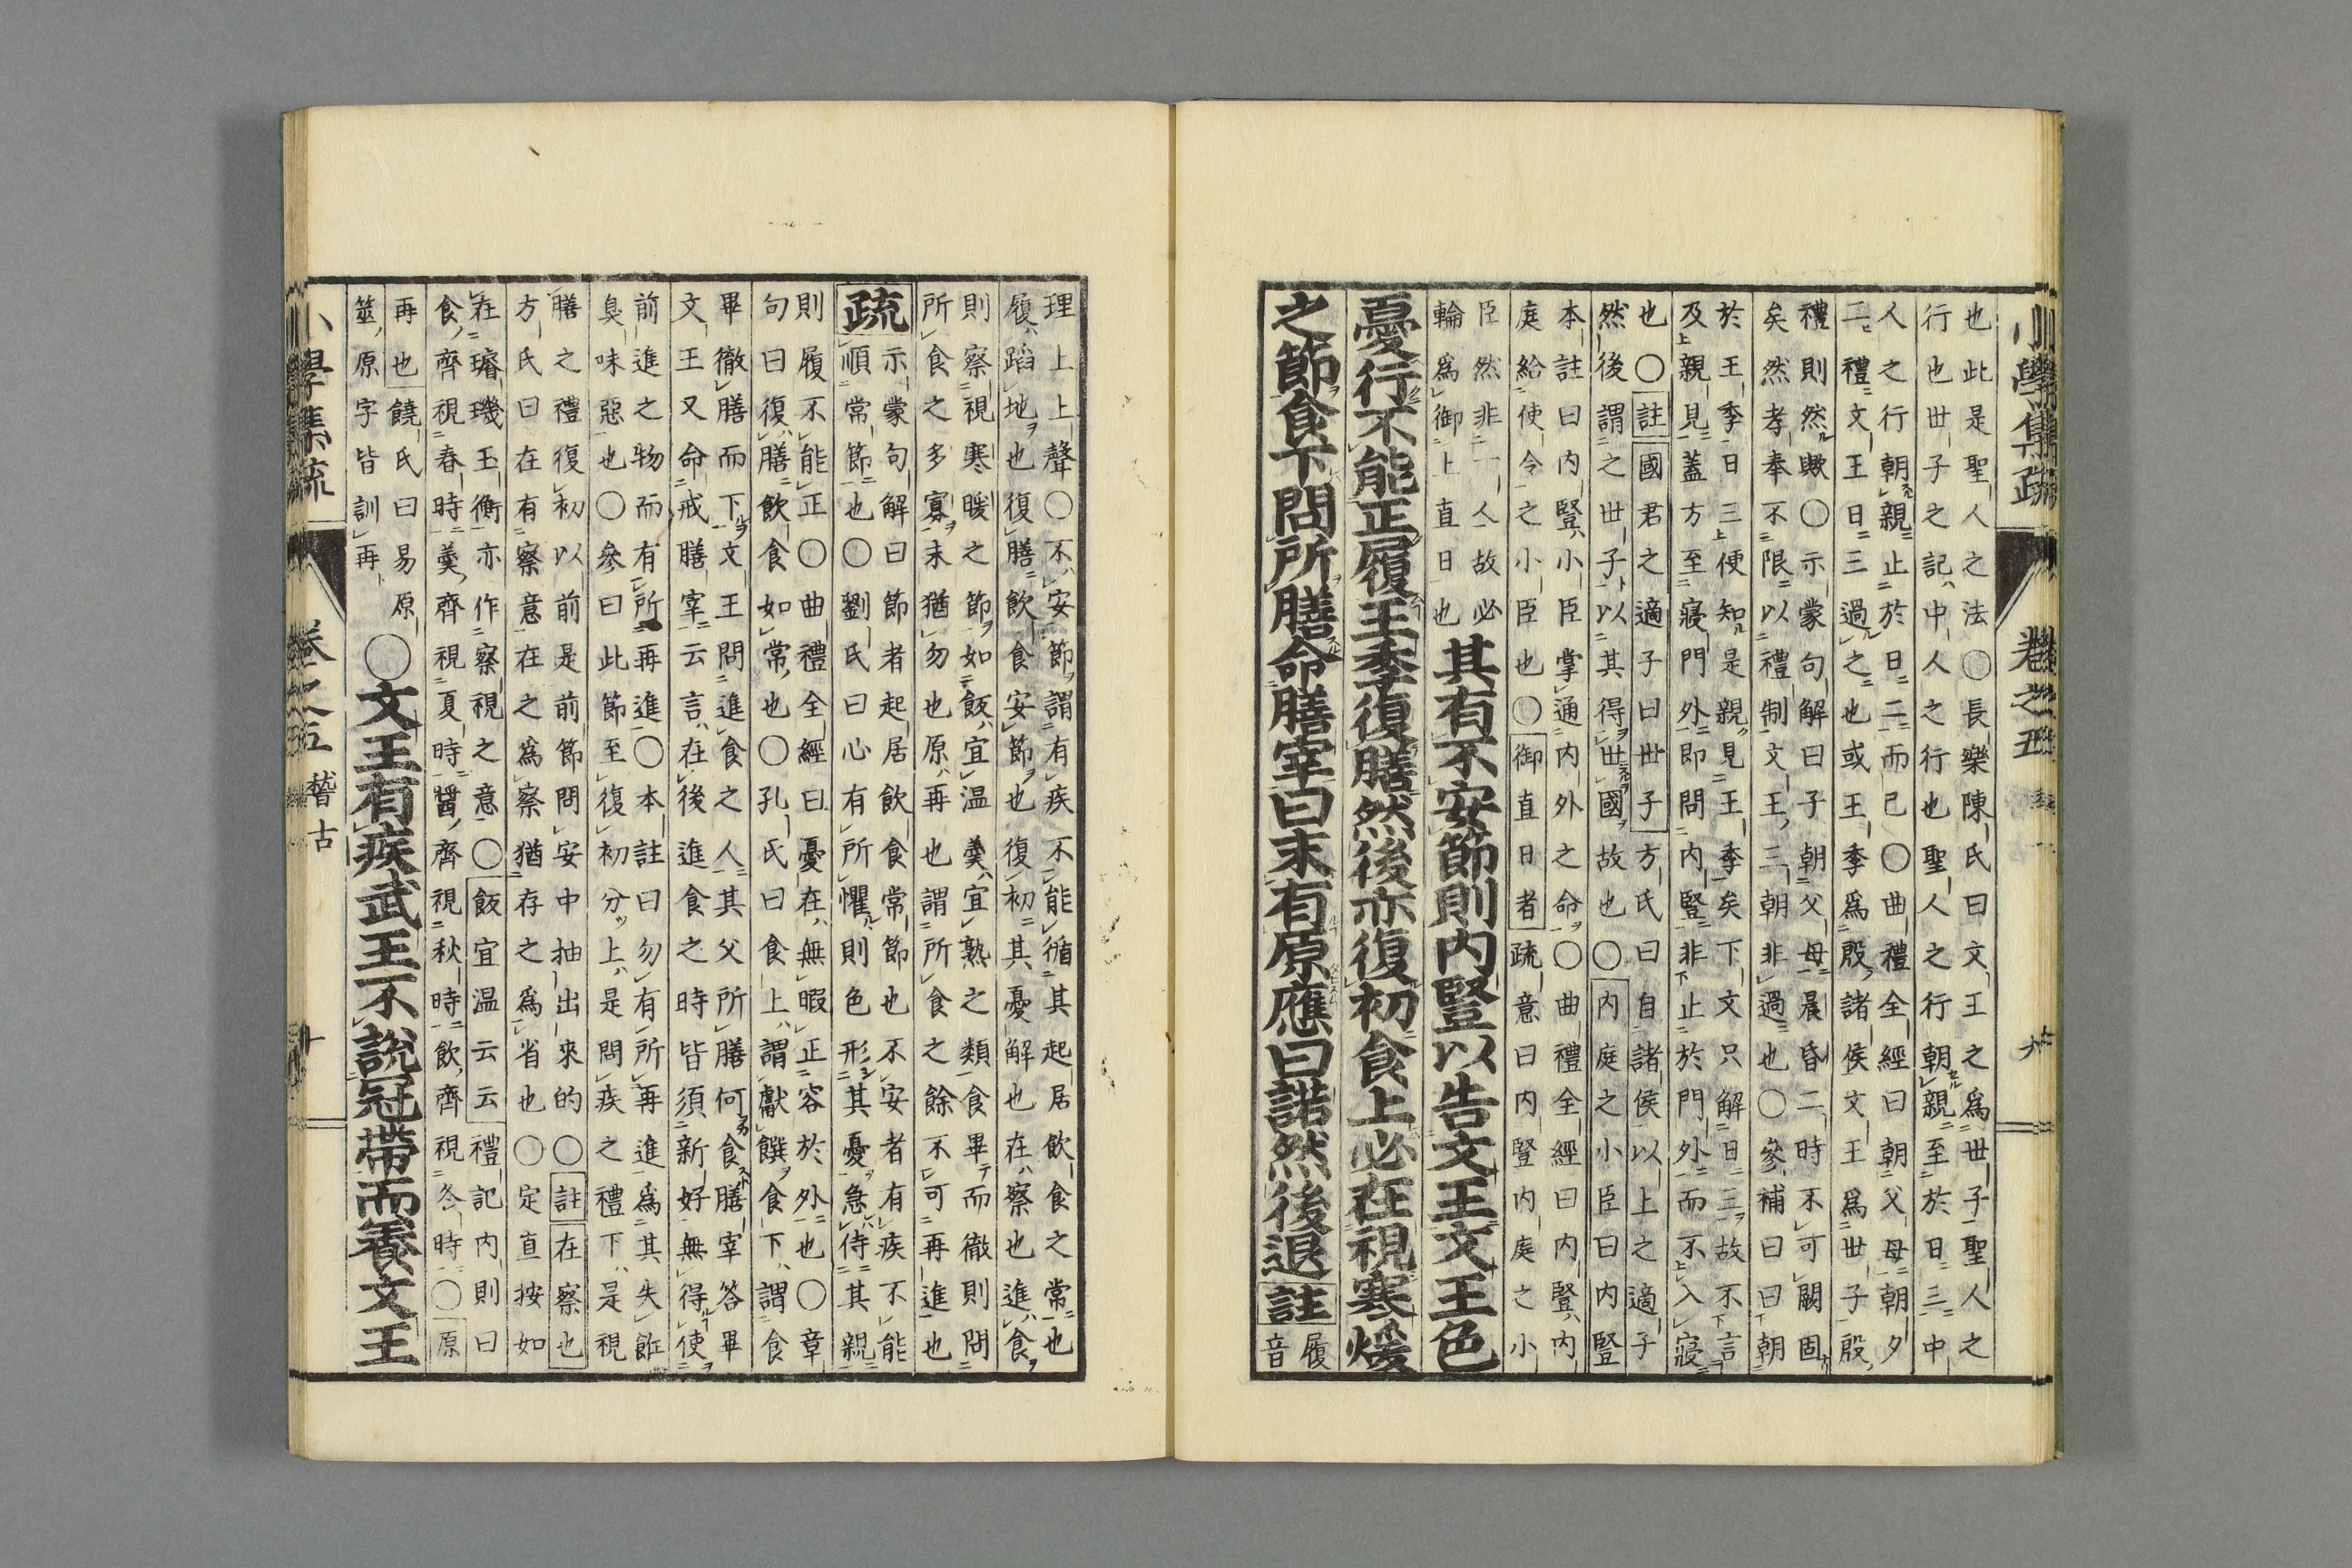 小學集疏
卷之五
九
也此是聖人之法○長樂陳氏曰文王之爲世子聖人之
行也世子之記中人之行也聖人之行朝親至於日三中
人之行朝親止於日二而已○曲禮全經曰朝父母朝夕
二禮文王日三過之也或王季爲殷諸侯文王爲世子殷
禮則然歟○示蒙句解曰子朝父母晨昏二時不可闕固
矣然孝奉不限以禮制文王三朝非過也○參補曰曰朝
於王季日三便知是親見王季矣下文只解日三故不言
及親見蓋方至寢門外即問內豎非止於門外而不入寢
也○註國君之適子曰世子方氏曰自諸侯以上之適子
然後謂之世子以其得世國故也○內庭之小臣曰內豎
本註曰內豎小臣掌通內外之命○曲禮全經曰內豎內
庭給使令之小臣也○御直日者疏意曰內豎內庭之小
臣然非一人故必
輪爲御上直日也
其有不安節則內豎以告文王文王色
憂行不能正履王季復膳然後亦復初食上必在視寒煖
之節食下問所膳命膳宰曰末有原應曰諾然後退註
履
音
理上上聲○不安節謂有疾不能循其起居飲食之常也
履蹈地也復膳飲食安節也復初其憂解也在察也進食
則察視寒暖之節如飯宜温羹宜熟之類食畢而徹則問
所食之多寡末猶勿也原再也謂所食之餘不可再進也
疏
示蒙句解曰節者起居飲食常節也不安者有疾不能
順常節也○劉氏曰心有所懼則色形其憂急侍其親
則履不能正○曲禮全經曰憂在無暇正容於外也○章
句曰復膳飲食如常也○孔氏曰食上謂獻饌食下謂食
畢徹膳而下文王問進食之人其父所膳何食膳宰答畢
文王又命戒膳宰云言在後進食之時皆須新好無得使
前進之物而有所再進○本註曰勿有所再進爲其失飪
臭味惡也○參曰此節至復初分上是問疾之禮下是視
膳之禮復初以前是前節問安中抽出來的○註在察也
方氏曰在有察意在之爲察猶存之爲省也○定直按如
在璿璣玉衡亦作察視之意○飯宜温云云禮記內則曰
食齊視春時羹齊視夏時醬齊視秋時飲齊視冬時○原
再也饒氏曰易原
筮原字皆訓再
○文王有疾武王不說冠帶而養文王
小學集疏
卷之五
稽古
十